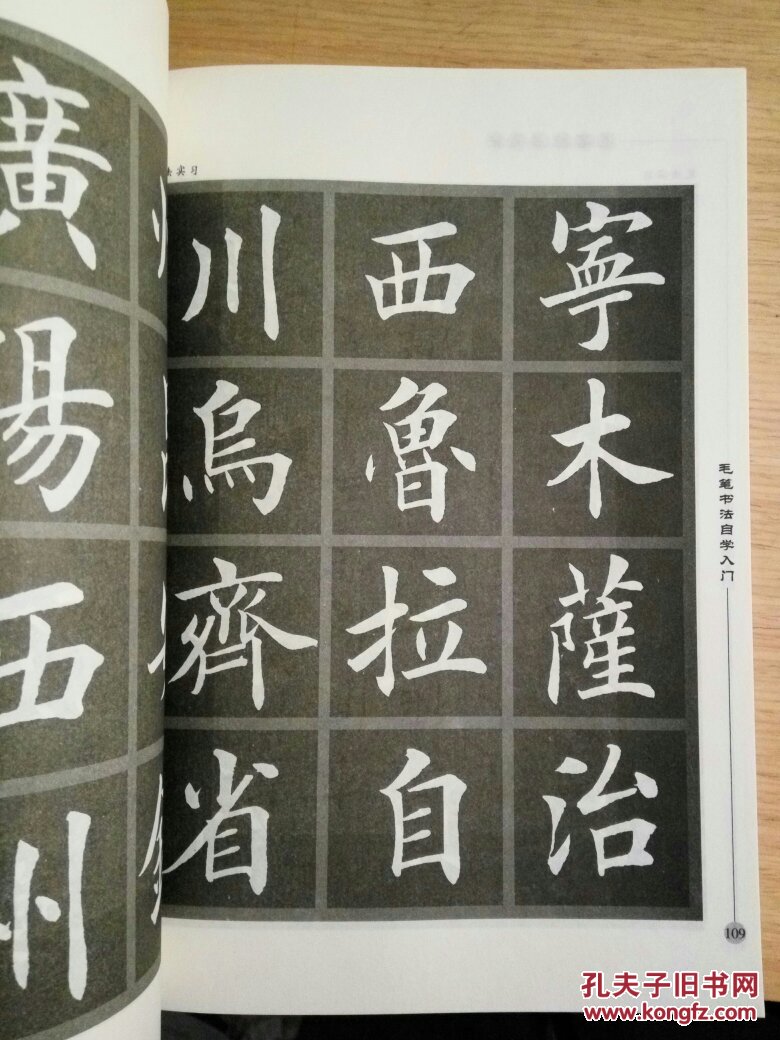 法实习
川西寧
烏魯木
齊拉薩
省自治
廣
陽
西
州
毛笔书法自学入门
109
孔夫子旧书网
www.kongfz.com